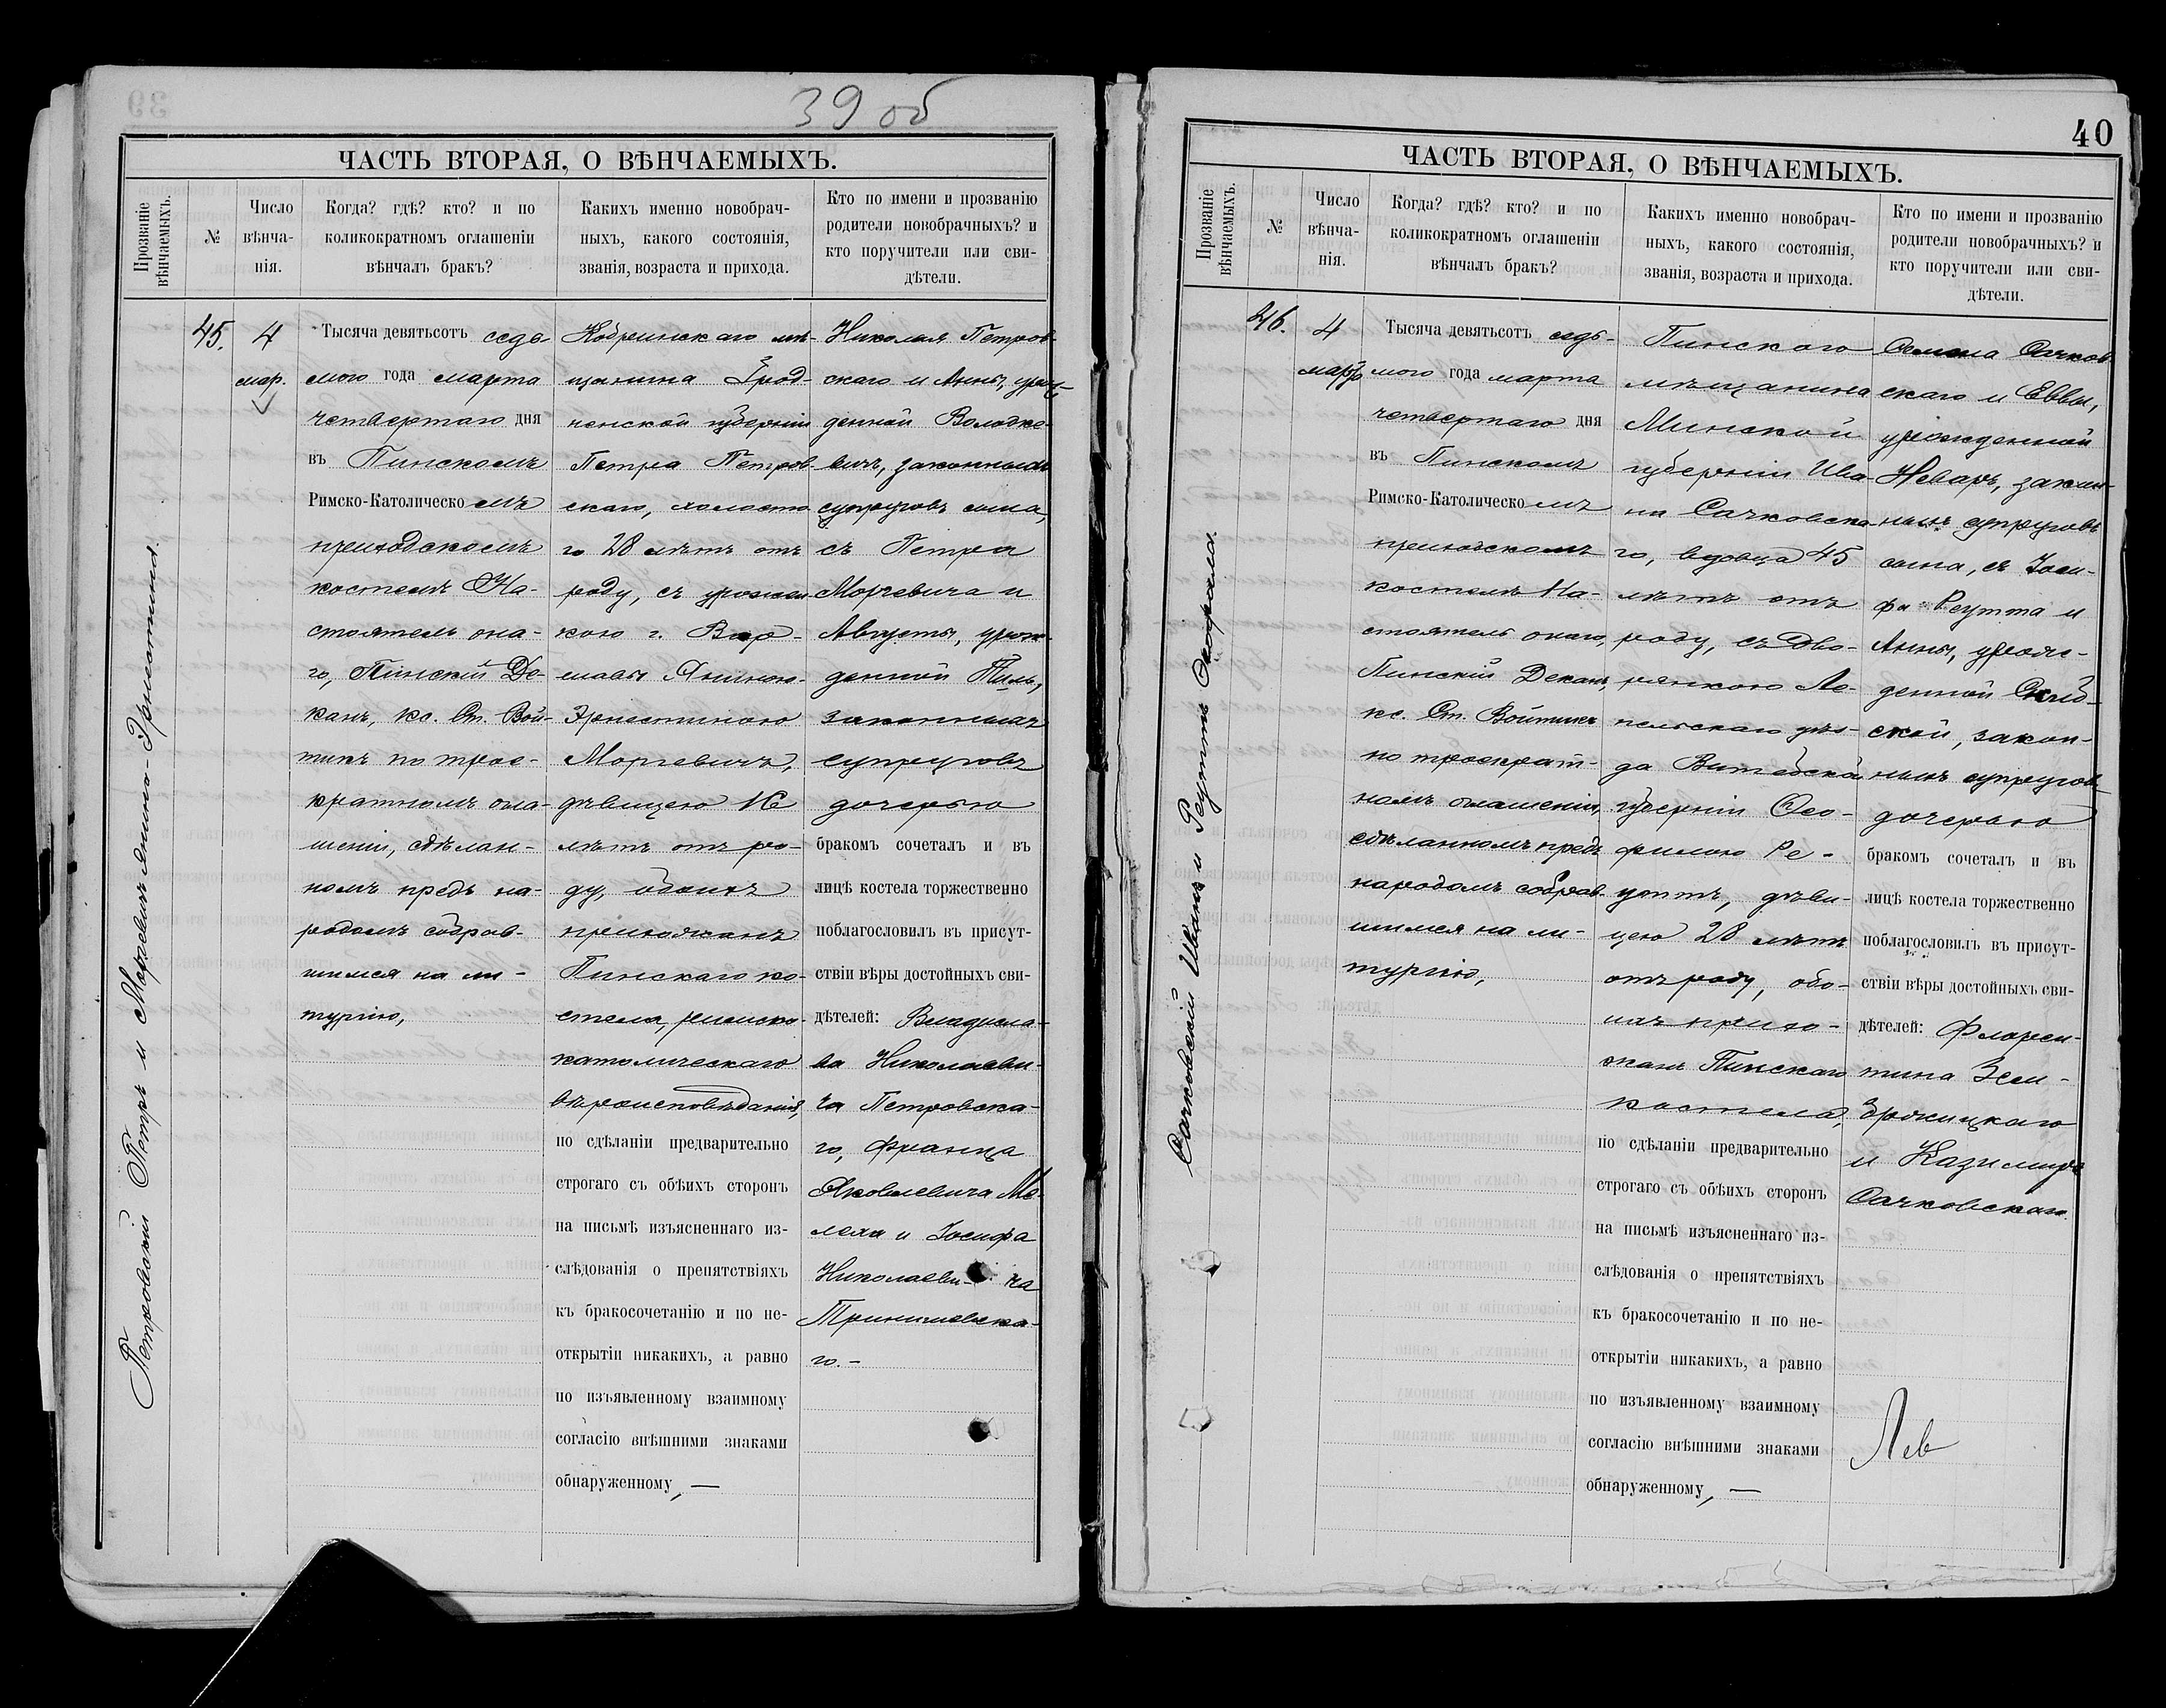 39 об
ЧАСТЬ ВТОРАЯ, О ВѢНЧАЕМЫХЪ.
Прозваніе вѣнчаемыхъ.
№
Число вѣнча-
нія.
Когда? гдѣ? кто? и по
коликократномъ оглашеніи
вѣнчалъ бракъ?
Какихъ именно новобрач-
ныхъ, какого состоянія,
званія, возраста и прихода.
Кто по имени и прозванію
родители новобрачныхъ? и
кто поручители или сви-
дѣтели.
Петровскій Петръ и Моргевичъ Янина-Эрнестина.
45.
4
мар.
Тысяча девятьсотъ седь
мого года марта
четвертаго дня
въ Пинскомъ
Римско-Католическомъ
приходскомъ
костелѣ На-
стоятель она-
го, Пинскій Де-
канъ, кс. Ст. Вой-
тикъ по трое-
кратномъ огла-
шеніи, сдѣлан-
номъ предъ на-
родомъ собрав-
шимся на ли-
тургію,
Кобринскаго мѣ-
щанина Грод-
ненской губерніи
Петра Петров-
скаго, холосто
го 28 лѣтъ отъ
роду, съ урожен
кою г. Вар-
шавы Яниною-
Эрнестиною
Моргевичъ,
дѣвицею 16
лѣтъ отъ ро-
ду, обоихъ
прихожанъ
Пинскаго ко-
стела, римско-
католическаго
вѣроисповѣданія,
по сдѣланіи предварительно
строгаго съ обѣихъ сторонъ
на письмѣ изъясненнаго из-
слѣдованія о препятствіяхъ
къ бракосочетанію и по не-
открытіи никакихъ, а равно
по изъявленному взаимному
согласію внѣшними знаками
обнаруженному, —
Николая Петров-
скаго и Анны, урож-
денной Володке-
вичъ, законныхъ
супруговъ сына,
съ Петра
Моргевича и
Августы, урож-
денной Тиль,
законныхъ
супруговъ
дочерью
бракомъ сочеталъ и въ
лицѣ костела торжественно
поблагословилъ въ присут-
ствіи вѣры достойныхъ сви-
дѣтелей: Владисла-
ва Николаеви-
ча Петровска-
го, Франца
Яковлевича
и Іосифа
Николаеви- ча
го. –
40
ЧАСТЬ ВТОРАЯ, О ВѢНЧАЕМЫХЪ.
Прозваніе вѣнчаемыхъ.
№
Число
вѣнча-
нія.
Когда? гдѣ? кто? и по
коликократномъ оглашеніи
вѣнчалъ бракъ?
Какихъ именно новобрач-
ныхъ, какого состоянія,
званія, возраста и прихода.
Кто по имени и прозванію
родители новобрачныхъ? и
кто поручители или сви-
дѣтели.
Сачковскій Иванъ и Реуттъ
46.
4
марта
Тысяча девятьсотъ седь-
мого года марта
четвертаго дня
въ Пинскомъ
Римско-Католическомъ
приходскомъ
костелѣ На-
стоятель онаго,
Пинскій Деканъ,
кс. Ст. Войтикъ
по троекрат-
номъ оглашеніи,
сдѣланномъ предъ
народомъ собрав-
шимся на ли-
тургію,
Пинского
мѣщанина
Минской
губерніи Ива-
на Сачковска-
го, вдовца 45
лѣтъ отъ
роду, съ дво-
рянкою Ле-
пельскаго уѣз-
да Витебской
губерніи Ѳео-
филою Ре-
уттъ, дѣви-
цею 28 лѣтъ
отъ роду, обо-
ихъ прихо-
жанъ Пинскаго
костела,
по сдѣланіи предварительно
строгаго съ обѣихъ сторонъ
на письмѣ изъясненнаго из-
слѣдованія о препятствіяхъ
къ бракосочетанію и по не-
открытіи никакихъ, а равно
по изъявленному взаимному
согласію внѣшними знаками
обнаруженному, —
Семена Сачков
скаго и Еввы,
урожденной
Неваръ, закон-
ныхъ супруговъ
сына, съ Іоси-
фа Реутта и
Анны, урож-
денной
ской, закон-
ныхъ супруговъ
дочерью
бракомъ сочеталъ и въ
лицѣ костела торжественно
поблагословилъ въ присут-
ствіи вѣры достойныхъ сви-
дѣтелей: Флорен-
тина Зем-
и Казимира
Сачковскаго.